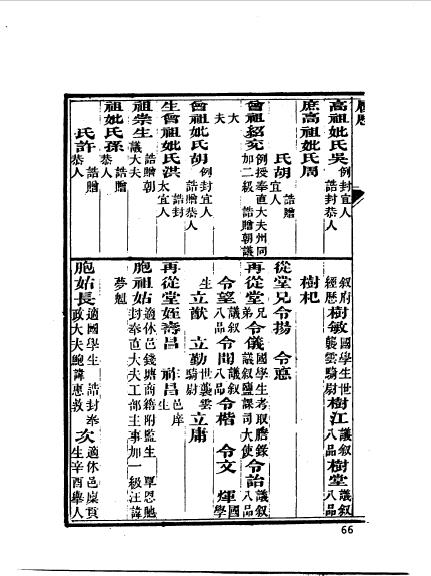 履歷
高祖妣氏吳 例封宜人 誥封恭人
庶高祖妣氏周
氏胡 宜人 誥贈
曾祖紹 例授奉直大夫州同加二級 誥贈朝議
大夫
曾祖妣氏胡 例封宜人 誥贈恭人
生曾祖妣氏洪 誥封太宜人
祖崇生 誥贈朝議大夫
祖妣氏孫 誥贈恭人
氏許 誥贈恭人
敘府經歷 樹敏 國學生世襲雲騎尉 樹江 議敘八品 樹堂 議敘八品
樹杞
從堂兄令揚 令悳
再從堂兄令儀 國學生考取謄錄議敘鹽課司大使 令詒 議敘八品
弟
令望 議敘八品 令聞 議敘八品 令楷 令文 煇 國學
生 立猷 立勤 世襲雲騎尉 立庸
再從堂姪壽昌 昌 邑庠生
胞祖姑 適休邑錢塘商籍附監生 覃恩貤封奉直大夫工部主事加一級汪諱
夢魁
胞姑長 適國學生 誥封奉政大夫鮑諱 次 適休邑廩貢生辛酉舉人
66